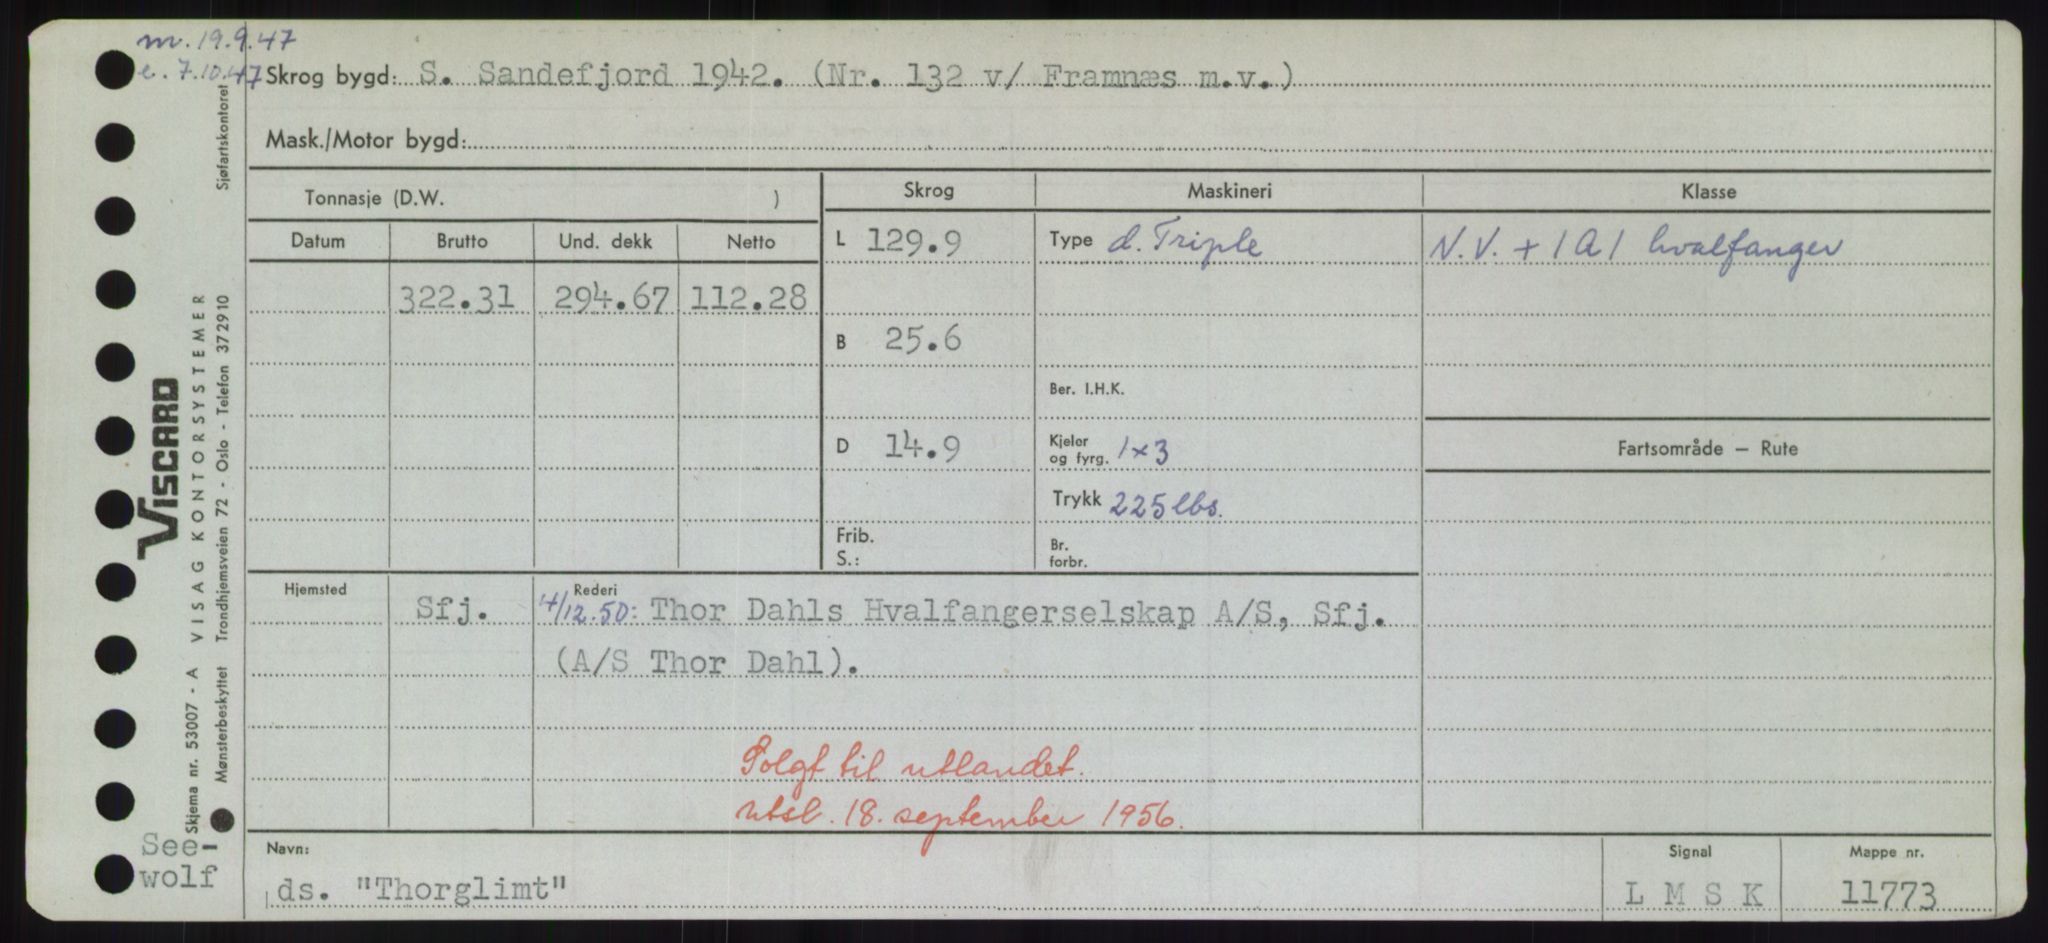 m. 19.9.47
e. 7.10.47
Skrog bygd: S. Sandefjord 1942. (Nr. 132 v/ Framnæs m.v.)
Mask./Motor bygd:
Tonnasje (D.W. )
Skrog
Maskineri
Klasse
Datum
Brutto
Und. dekk
Netto
L 129.9
Type d. Triple
N.V. + 1A1 hvalfanger
322.31
294.67
112.28
B 25.6
Ber. I.H.K.
D 14.9
Kjeler
og fyrg. 1x3
Fartsområde — Rute
Trykk 225 lbs.
Frib.
S.:
Br.
forbr.
Hjemsted
Rederi
Sfj.
4/12.50: Thor Dahls Hvalfangerselskap A/S, Sfj.
(A/S Thor Dahl).
Solgt til utlandet.
utsl. 18. september 1956.
Navn:
ds. "Thorglimt"
Signal
L M S K
Mappe nr.
11773
See-
wolf
VISCARD
Skjema nr. 53007 - A VISAG KONTORSYSTEMER
Mønsterbeskyttet Trondhjemsveien 72 - Oslo - Telefon 372910 Sjøfartskontoret